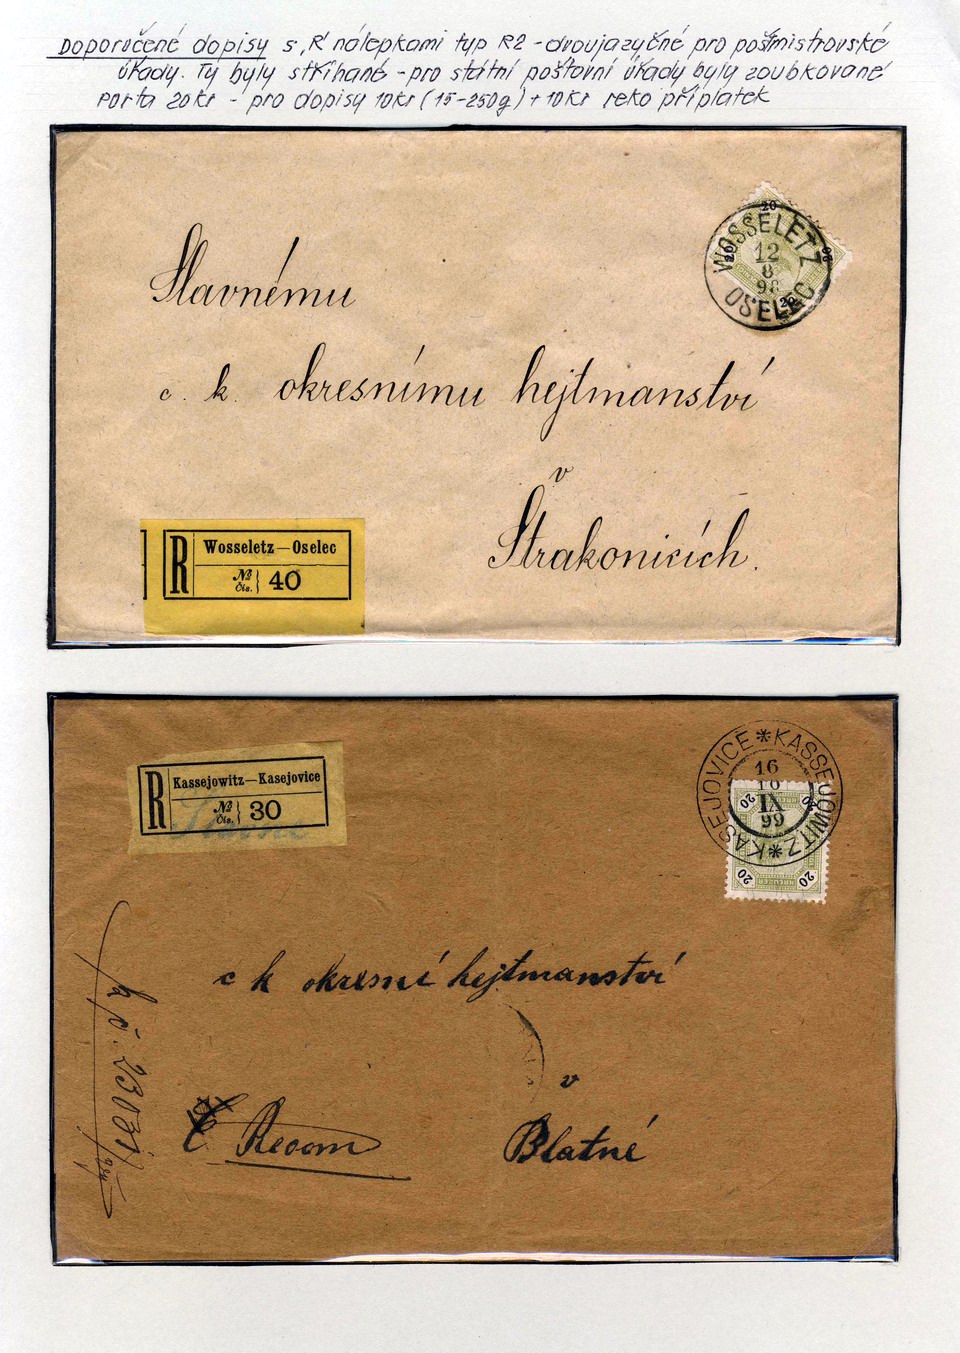 Doporučené dopisy s „R" nálepkami typ R2 - dvoujazyčné pro poštmistrovské
úřady. Ty byly stříhané - pro státní poštovní úřady byly zoubkované
Porta 20kr - pro dopisy 10kr (15-250g) + 10kr reko příplatek
20
20
20
20
WOSSELETZ
12
8
98
OSELEC
Slavnému
c. k. okresnímu hejtmanství
v
Strakonicích.
R
Wosseletz—Oselec
№
Čís.
40
KASEJOVICE * KASSEJOWITZ *
16
10
IX
99
20
20
20
20
R
Kassejowitz—Kasejovice
№
Čís.
30
c k okresní hejtmanství
v
Blatné
Recom
23031